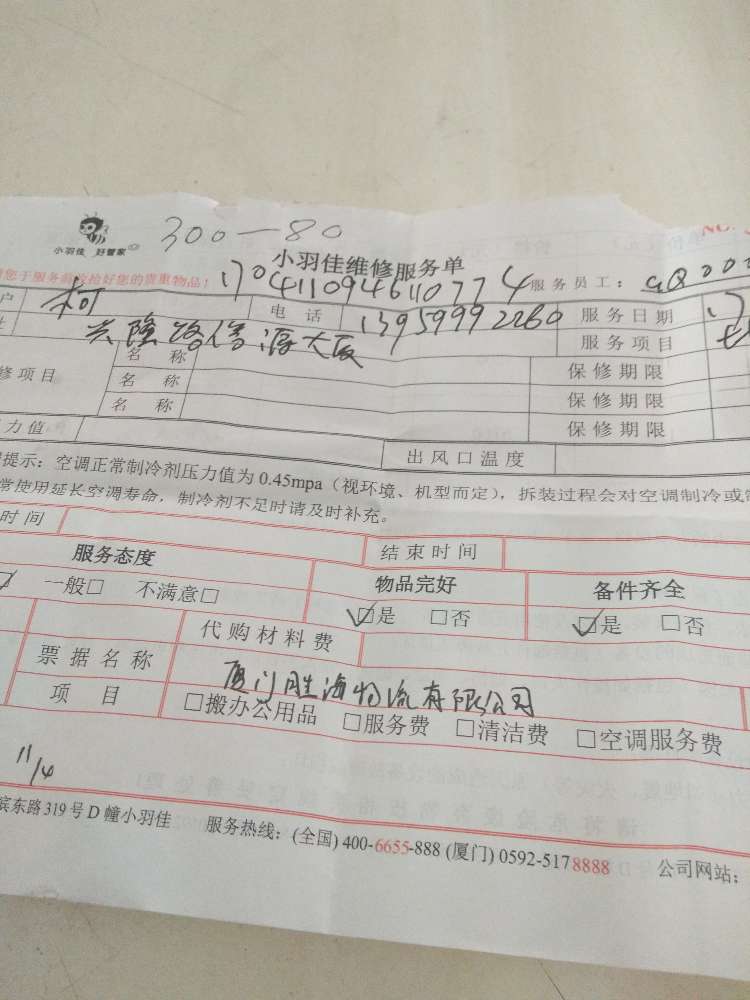 300-80
小羽佳 好管家
小羽佳维修服务单
您于服务前收拾好您的贵重物品!
170411094611077 4
服务员工:
户 柯 电话 13959992260 服务日期
兴隆路信源大厦 服务项目
修项目 名称 保修期限
名称 保修期限
名称 保修期限
力值 出风口温度
提示:空调正常制冷剂压力值为0.45mpa(视环境、机型而定),拆装过程会对空调制冷或
常使用延长空调寿命,制冷剂不足时请及时补充。
时间 结束时间
服务态度 物品完好 备件齐全
一般□ 不满意□ ☑是 □否 ☑是 □否
代购材料费
票据名称 厦门胜海物流有限公司
项目 □搬办公用品 □服务费 □清洁费 □空调服务费
11/4
宾东路319号D幢小羽佳 服务热线:(全国)400-6655-888 (厦门)0592-5178888 公司网站: